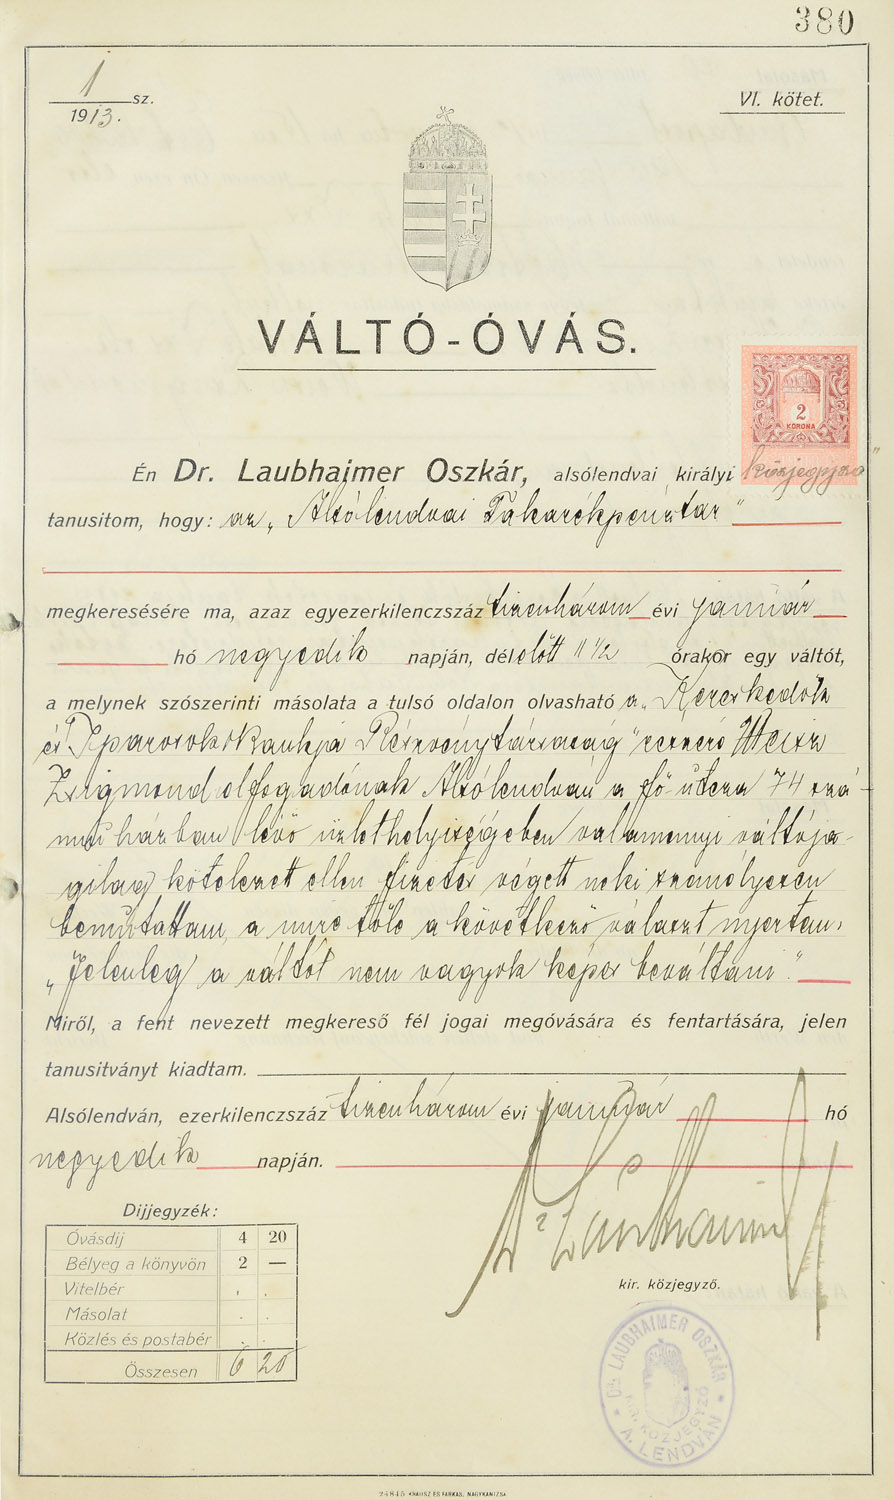 380
1 sz.
1913.
VI. kötet.
VÁLTÓ-ÓVÁS.
2
KORONA
Én Dr. Laubhaimer Oszkár, alsólendvai királyi közjegyző
tanusitom, hogy: az „Alsólendvai Takarékpénztár"
megkeresésére ma, azaz egyezerkilenczszáz tizenhárom évi január
hó negyedik napján, délelőtt 11 1/2 órakor egy váltót,
a melynek szószerinti másolata a tulsó oldalon olvasható a „Kereskedők
és Iparosok Bankja Részvénytársaság" czégnél Weisz
Zsigmond elfogadónak Alsólendván a fő utcza 74 szá-
mu házban lévő üzlethelyiségében valamennyi váltója-
gilag kötelezett ellen fizetés végett neki személyesen
bemutattam, a mire tőle a következő választ nyertem:
„Jelenleg a váltót nem vagyok képes beváltani."
Miről, a fent nevezett megkereső fél jogai megóvására és fentartására, jelen
tanusitványt kiadtam.
Alsólendván, ezerkilenczszáz tizenhárom évi január hó
negyedik napján.
Dr Laubhaimer
kir. közjegyző.
Dijjegyzék:
Óvásdij 4 20
Bélyeg a könyvön 2 —
Vitelbér
Másolat
Közlés és postabér
Összesen 6 20
DR. LAUBHAIMER OSZKÁR
KIR. KÖZJEGYZŐ
A. LENDVÁN
24845 KRAUSZ ÉS FARKAS, NAGYKANIZSA